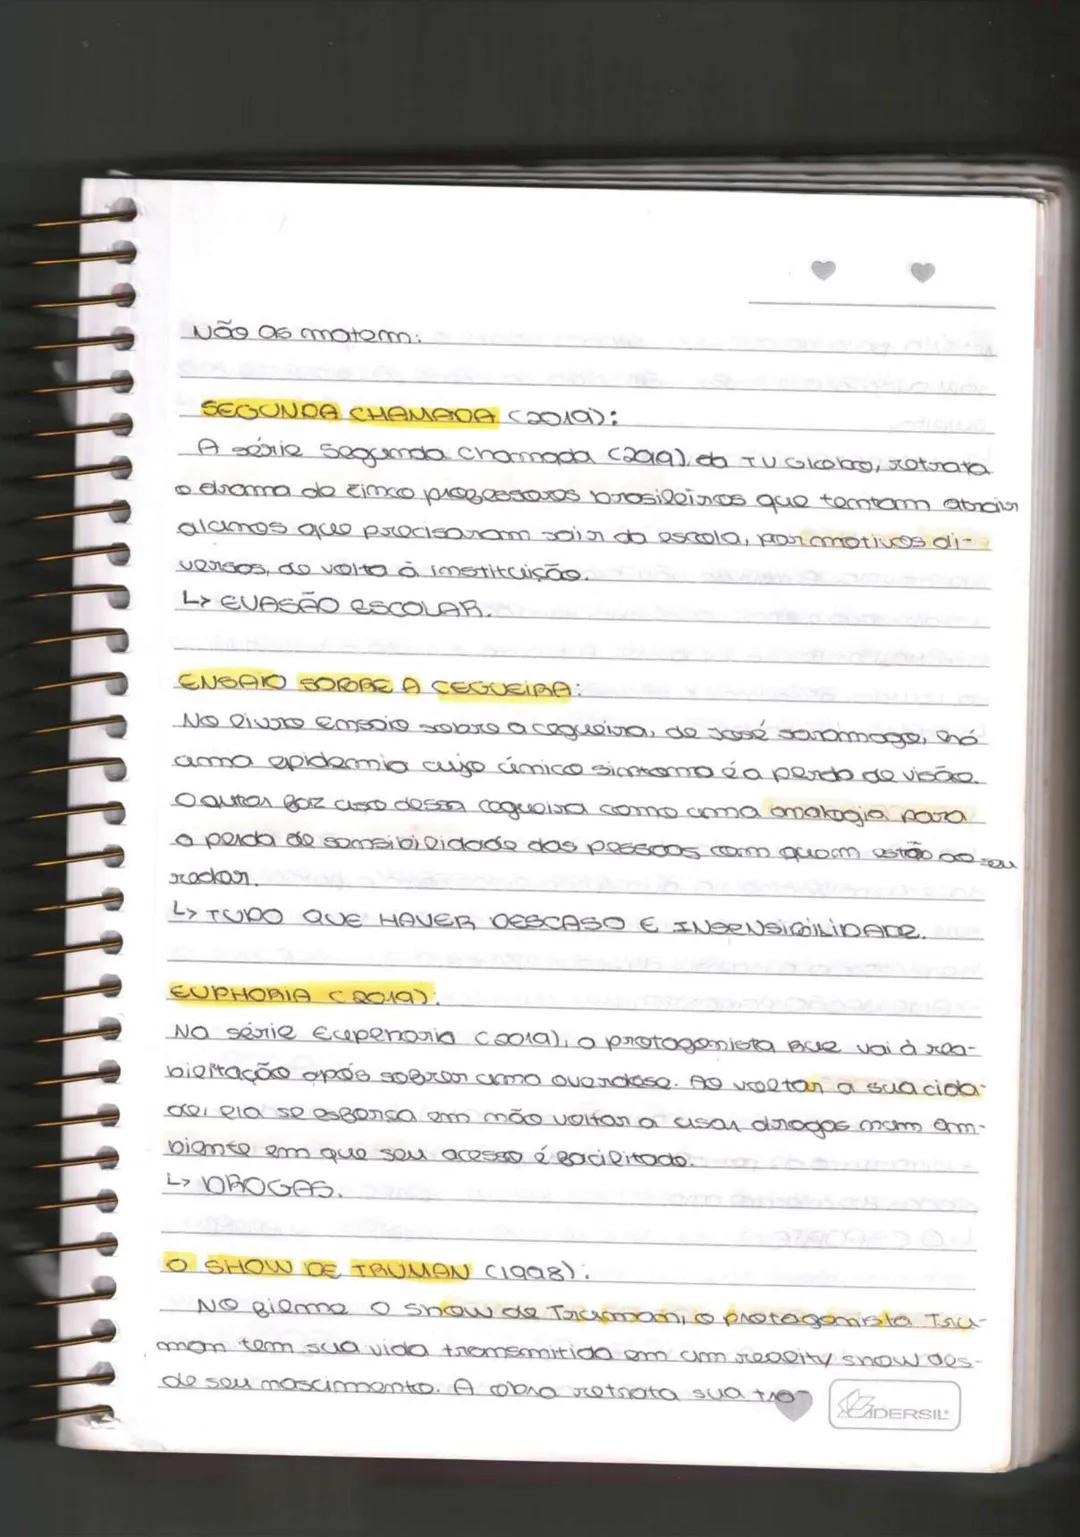 Não as matem:
SEGUNDA CHAMADA (2019):
A série Segunda Chamada (2019), da TV Globo, retrata
o drama de cinco professores brasileiros que tentam atrair
alunos que precisaram sair da escola, por motivos di-
versos, de volta à instituição.
↳ EVASÃO ESCOLAR.
ENSAIO SOBRE A CEGUEIRA:
No livro Ensaio sobre a cegueira, de José Saramago, há
uma epidemia cujo único sintoma é a perda de visão.
O autor faz uso dessa cegueira como uma analogia para
a perda de sensibilidade das pessoas com quem estão ao seu
redor.
↳ TUDO QUE HAVER DESCASO E INSENSIBILIDADE.
EUPHORIA (2019):
Na série Eupenoria (2019), a protagonista Rue vai à rea-
bilitação após sofrer uma overdose. Ao voltar a sua cida-
de, ela se esforça em não voltar a usar drogas num am-
biente em que seu acesso é facilitado.
↳ DROGAS.
O SHOW DE TRUMAN (1998):
No filme O show de Truman, o protagonista Tru-
man tem sua vida transmitida em um reality show des-
de seu nascimento. A obra retrata sua tra
LIDERSIL